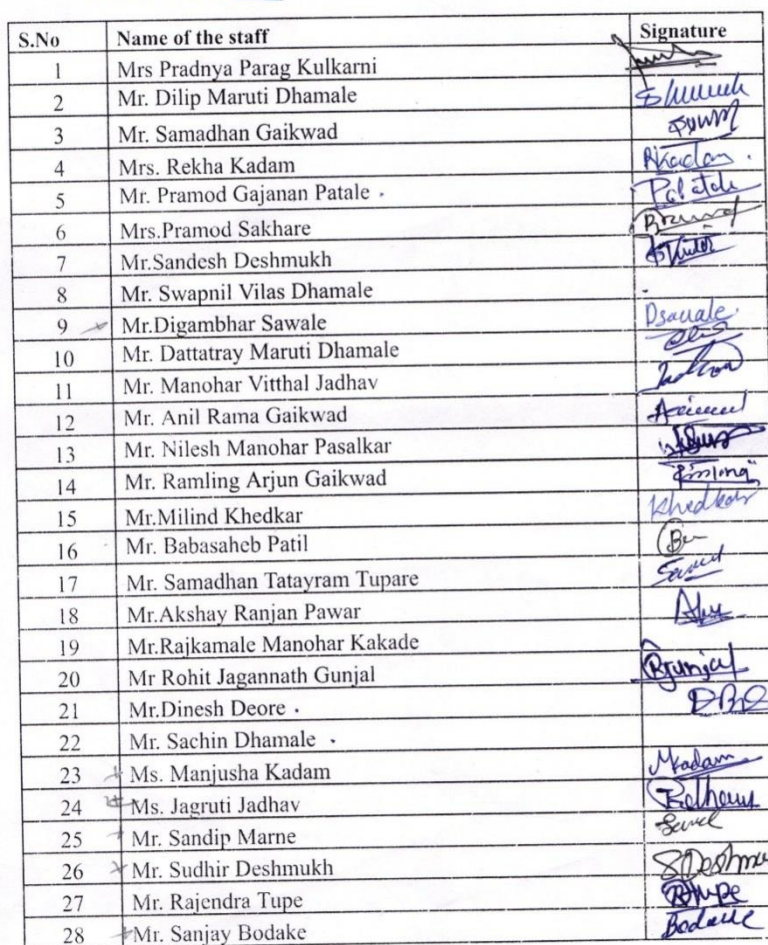 S.No Name of the staff Signature
1 Mrs Pradnya Parag Kulkarni
2 Mr. Dilip Maruti Dhamale
3 Mr. Samadhan Gaikwad
4 Mrs. Rekha Kadam RKadam.
5 Mr. Pramod Gajanan Patale . Patale
6 Mrs.Pramod Sakhare
7 Mr.Sandesh Deshmukh
8 Mr. Swapnil Vilas Dhamale
9 Mr.Digambhar Sawale Dsawale
10 Mr. Dattatray Maruti Dhamale
11 Mr. Manohar Vitthal Jadhav
12 Mr. Anil Rama Gaikwad
13 Mr. Nilesh Manohar Pasalkar
14 Mr. Ramling Arjun Gaikwad
15 Mr.Milind Khedkar Khedkar
16 Mr. Babasaheb Patil
17 Mr. Samadhan Tatayram Tupare
18 Mr.Akshay Ranjan Pawar
19 Mr.Rajkamale Manohar Kakade
20 Mr Rohit Jagannath Gunjal RGunjal
21 Mr.Dinesh Deore .
22 Mr. Sachin Dhamale .
23 Ms. Manjusha Kadam MKadam
24 Ms. Jagruti Jadhav
25 Mr. Sandip Marne
26 Mr. Sudhir Deshmukh SDeshmu
27 Mr. Rajendra Tupe RTupe
28 Mr. Sanjay Bodake